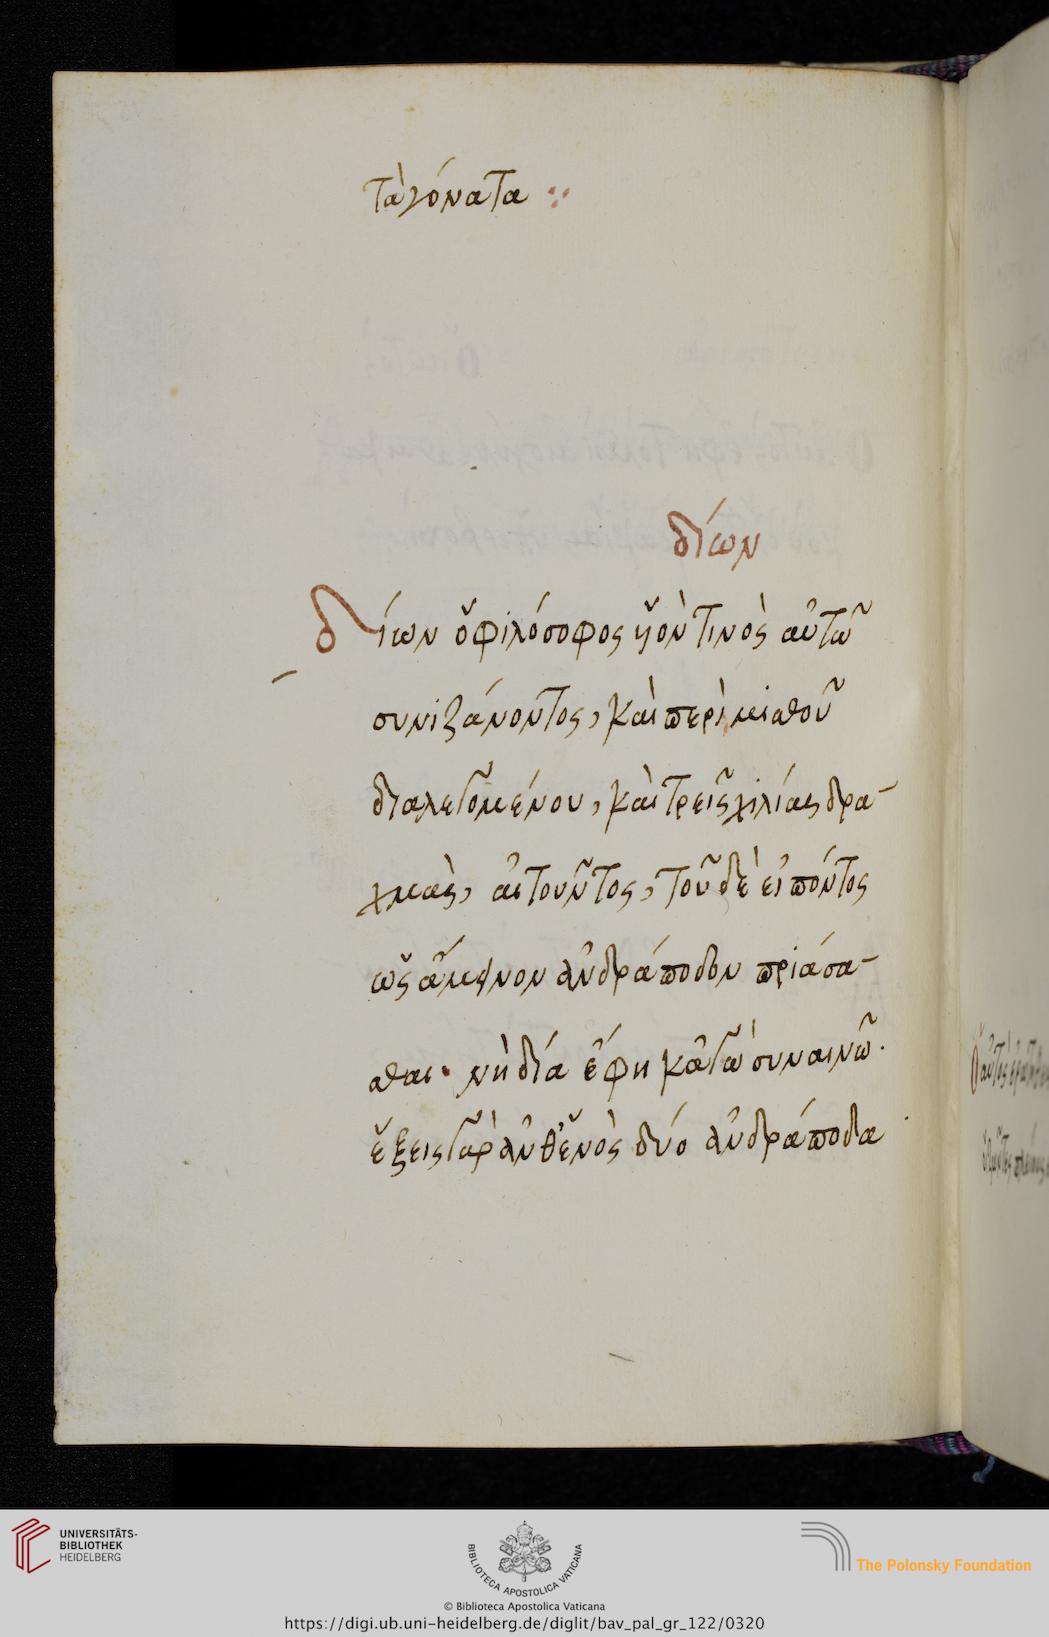 τὰ γόνατα :·
δίων
δίων ὁ φιλόσοφος ὑὸν τινὸς αὐτῶ
συνιζάνοντος, καὶ περὶ μισθοῦ
διαλεγομένου, καὶ τρεῖς χιλίας δρα-
χμὰς, αἰτοῦντος, τοῦ δὲ εἰπόντος
ὡς ἄμεινον ἀνδράποδον πριάσα-
σθαι · νὴ δία ἔφη κἀγὼ συναινῶ ·
ἕξεις γὰρ ἀνθ' ἑνὸς δύο ἀνδράποδα
UNIVERSITÄTS-
BIBLIOTHEK
HEIDELBERG
BIBLIOTECA APOSTOLICA VATICANA
The Polonsky Foundation
© Biblioteca Apostolica Vaticana
https://digi.ub.uni-heidelberg.de/diglit/bav_pal_gr_122/0320